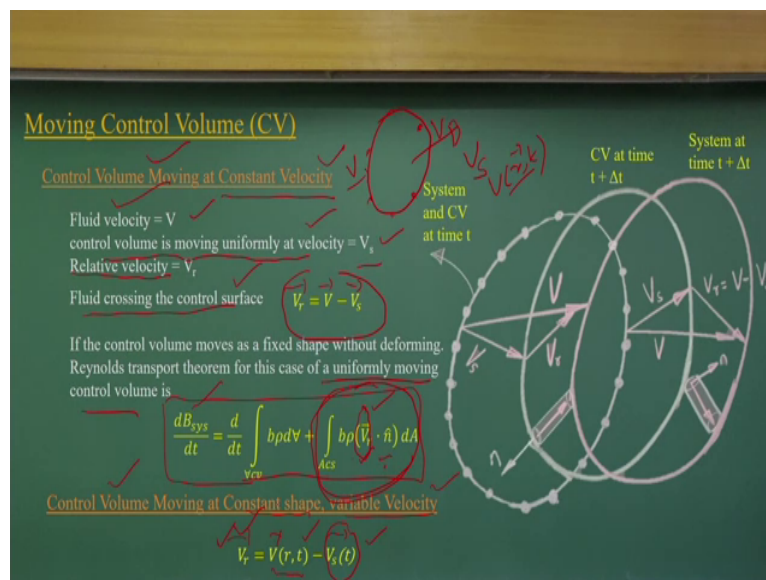 Moving Control Volume (CV)
Control Volume Moving at Constant Velocity
Fluid velocity = V
control volume is moving uniformly at velocity = Vₛ
Relative velocity = Vᵣ
Fluid crossing the control surface
Vᵣ = V − Vₛ
If the control volume moves as a fixed shape without deforming.
Reynolds transport theorem for this case of a uniformly moving
control volume is
dB_sys/dt = d/dt ∫_∀CV bρd∀ + ∫_ACS bρ(V⃗ᵣ · n̂) dA
Control Volume Moving at Constant shape, variable Velocity
Vᵣ = V(r, t) − Vₛ(t)
Vₛ
System
and CV
at time t
CV at time
t + Δt
System at
time t + Δt
V
Vₛ
Vᵣ
Vₛ
V
Vᵣ = V −
n
n